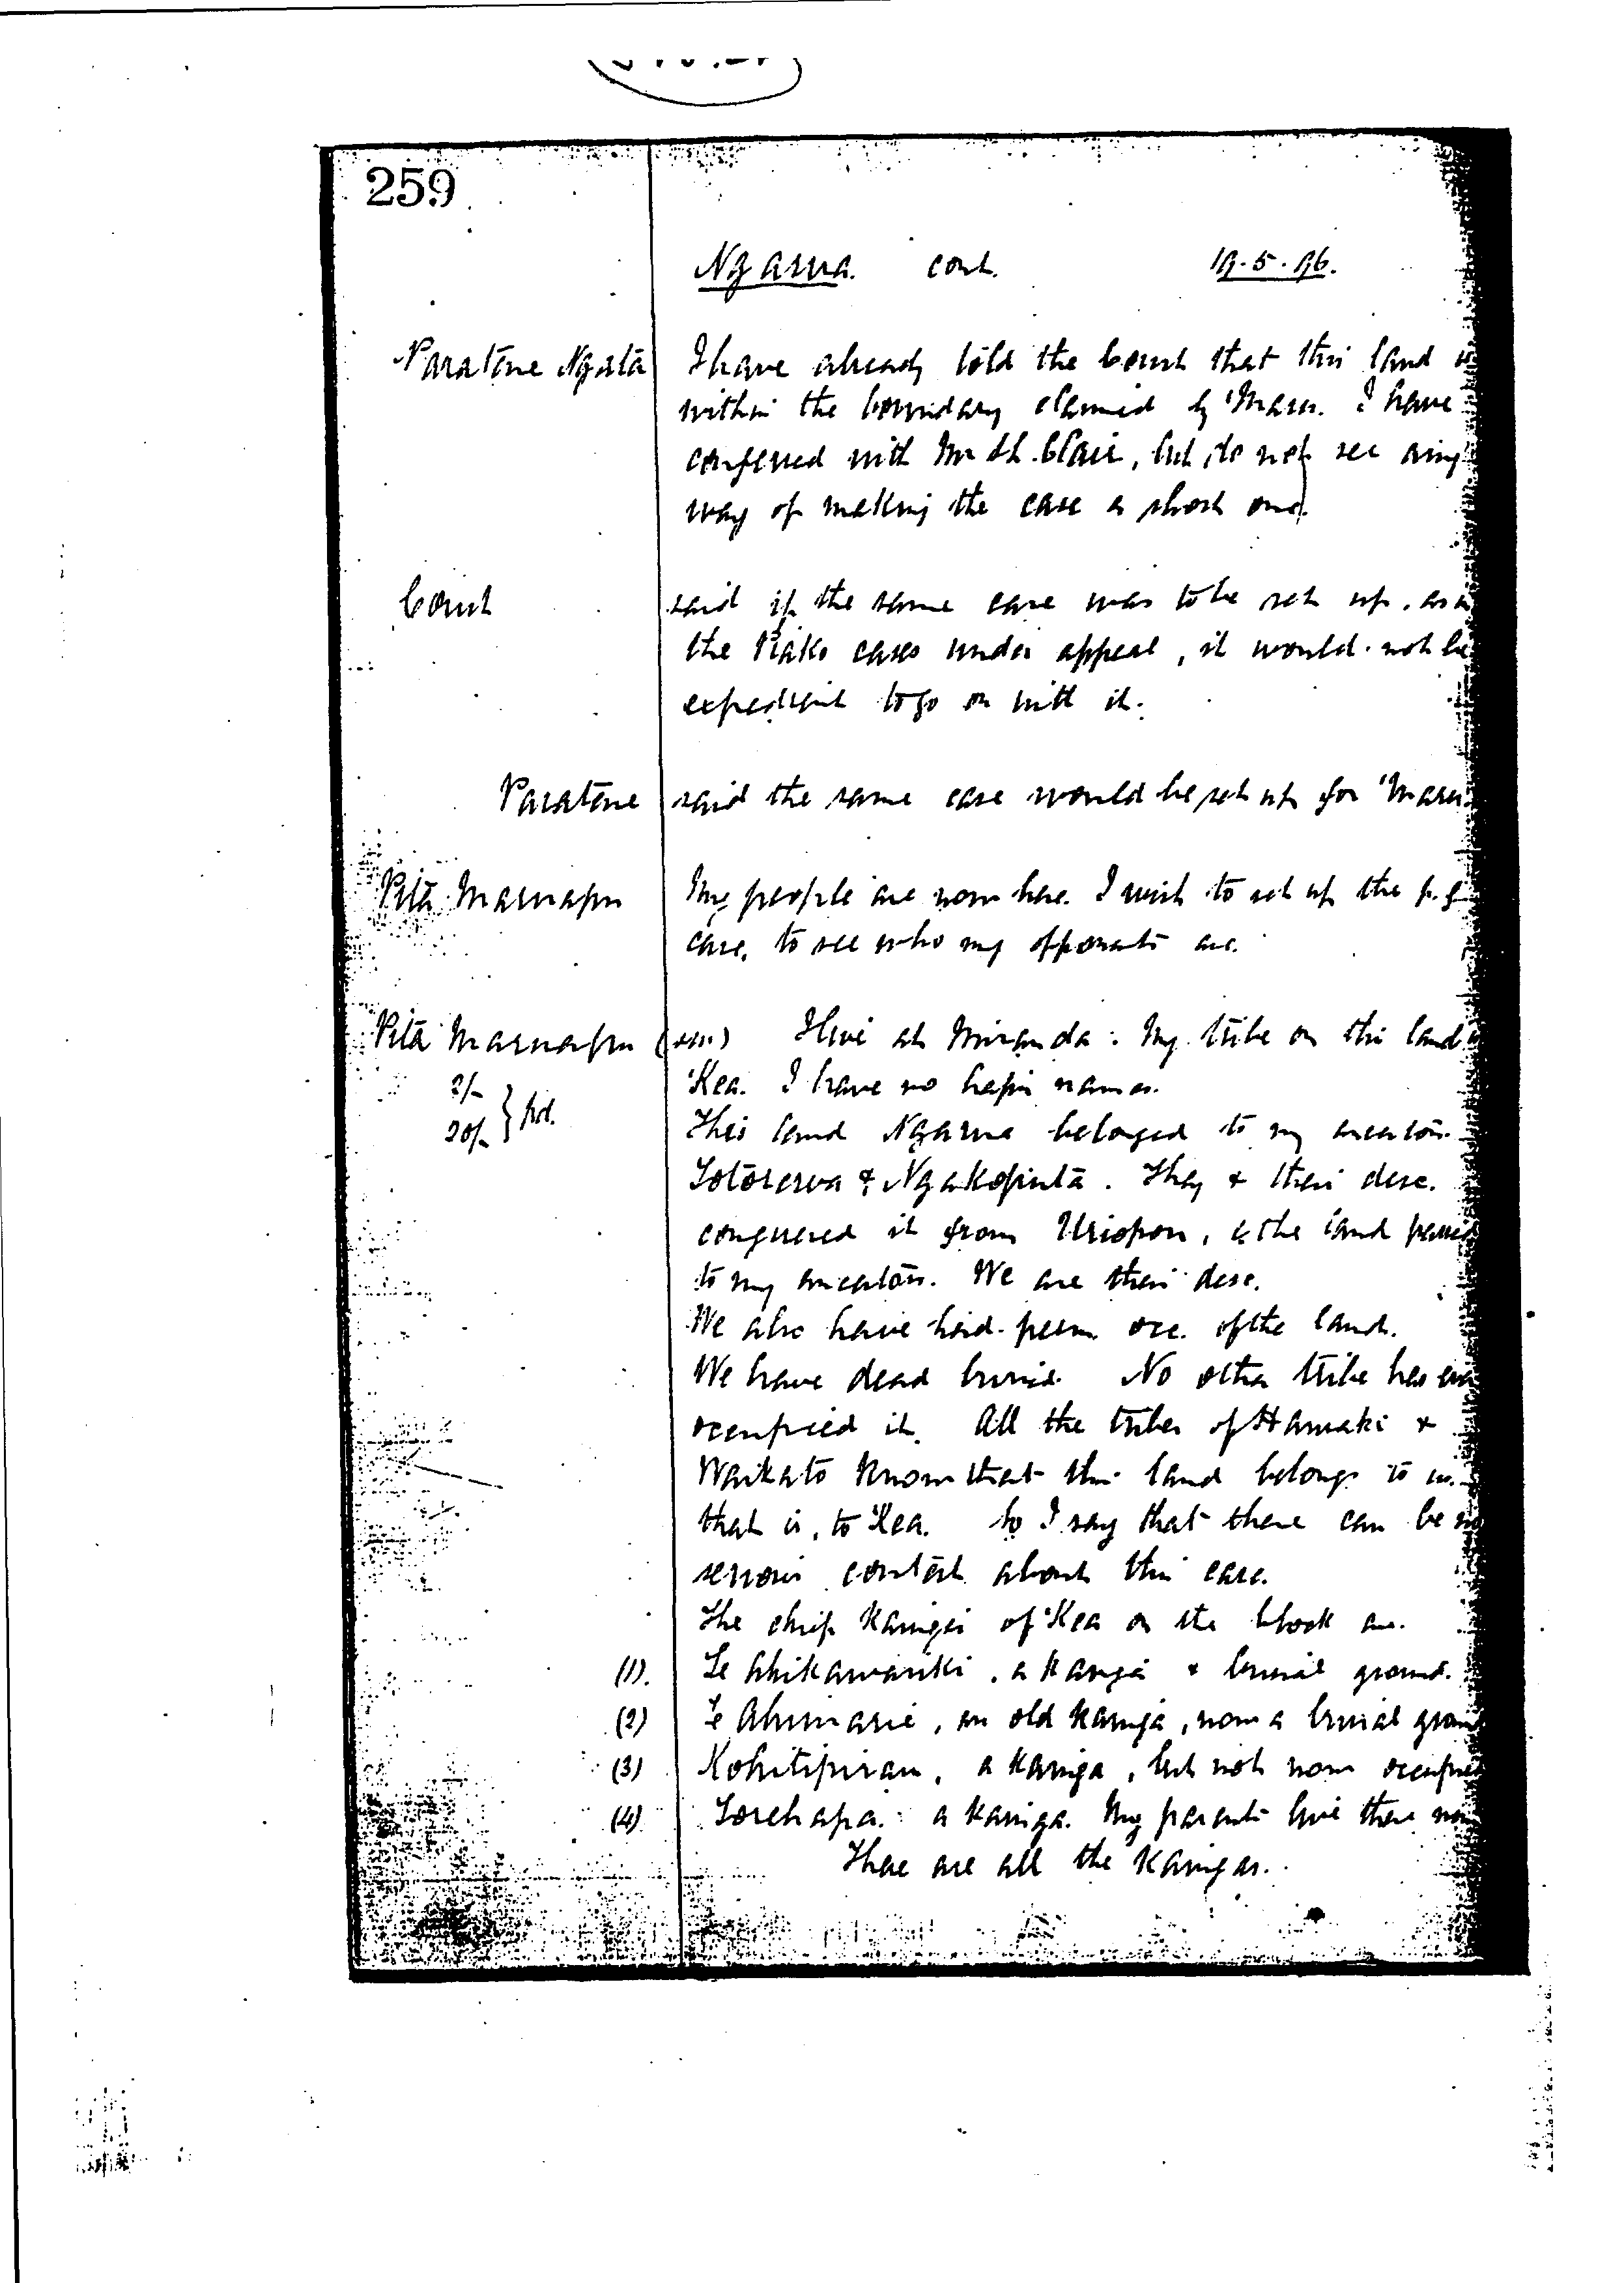 259
Ngarua. cont. 19.5.96.
Paratene Ngata I have already told the Court that this land is
within the boundary claimed by 'Maru. I have
conferred with Mr St. Clair, but do not see any
way of making the case a short one.
Court said if the same case was to be set up, as in
the Piako cases under appeal, it would not be
expedient to go on with it.
Paratene said the same case would be set up for 'Maru.
Pita Maruapu My people are now here. I wish to set up the p.f.
case, to see who my opponents are.
Pita Maruapu (sw.) I live at Miranda: My tribe on this land
'Kea. I have no hapu names.
2/-
20/- } pd.
This land Ngarua belonged to my ancestors
& They & their desc.
conquered it from Uriopou, & the land passed
to my ancestors. We are their desc.
We also have had perm. occ. of the land.
We have dead buried. No other tribe has ever
occupied it. All the tribes of Hauraki &
Waikato know that this land belongs to us.
that is, to 'Kea. So I say that there can be no
serious contest about this case.
The chief Kaingas of 'Kea on the block are.
(1). Te Ahikawariki, a Kainga & burial ground.
(2) Te Ahimarie, an old Kainga, now a burial ground
(3) Kohitipirau, a Kainga, but not now occupied
(4) Torehapa: a Kainga. My parents live there now
These are all the Kaingas.